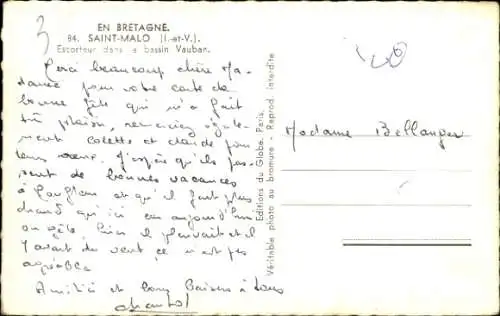 EN BRETAGNE.
84. SAINT-MALO (I.-et-V.).
Escorteur dans le bassin Vauban.
3
Merci beaucoup chère Ma-
dame pour votre carte de
bonne fête qui m'a fait
très plaisir, remerciez égale-
ment Colette et Claude pour
leurs J'espère qu'ils pas-
sent de bonnes vacances
à et qu'il fait plus
chaud qu'ici car aujourd'hui
on gèle. Hier il pleuvait et il
y avait du vent ce n'est pas
agréable
Amitiés et bons baisers à tous
Chantal
Editions du Globe, Paris.
Véritable photo au bromure - Reprod. interdite
Madame Bellanger